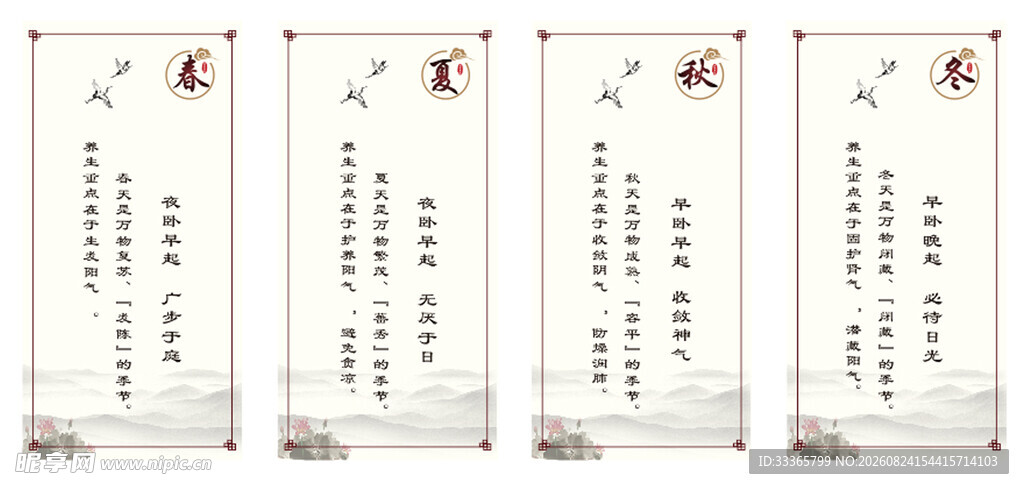 春
夜卧早起 广步于庭
春天是万物复苏、『发陈』的季节。
养生重点在于生发阳气。
夏
夜卧早起 无厌于日
夏天是万物繁茂、『蕃秀』的季节。
养生重点在于护养阳气，避免贪凉。
秋
早卧早起 收敛神气
秋天是万物成熟、『容平』的季节。
养生重点在于收敛阴气，防燥润肺。
冬
早卧晚起 必待日光
冬天是万物闭藏、『闭藏』的季节。
养生重点在于固护肾气，潜藏阳气。
昵享网 www.nipic.cn
ID:33365799 NO:20260824154415714103